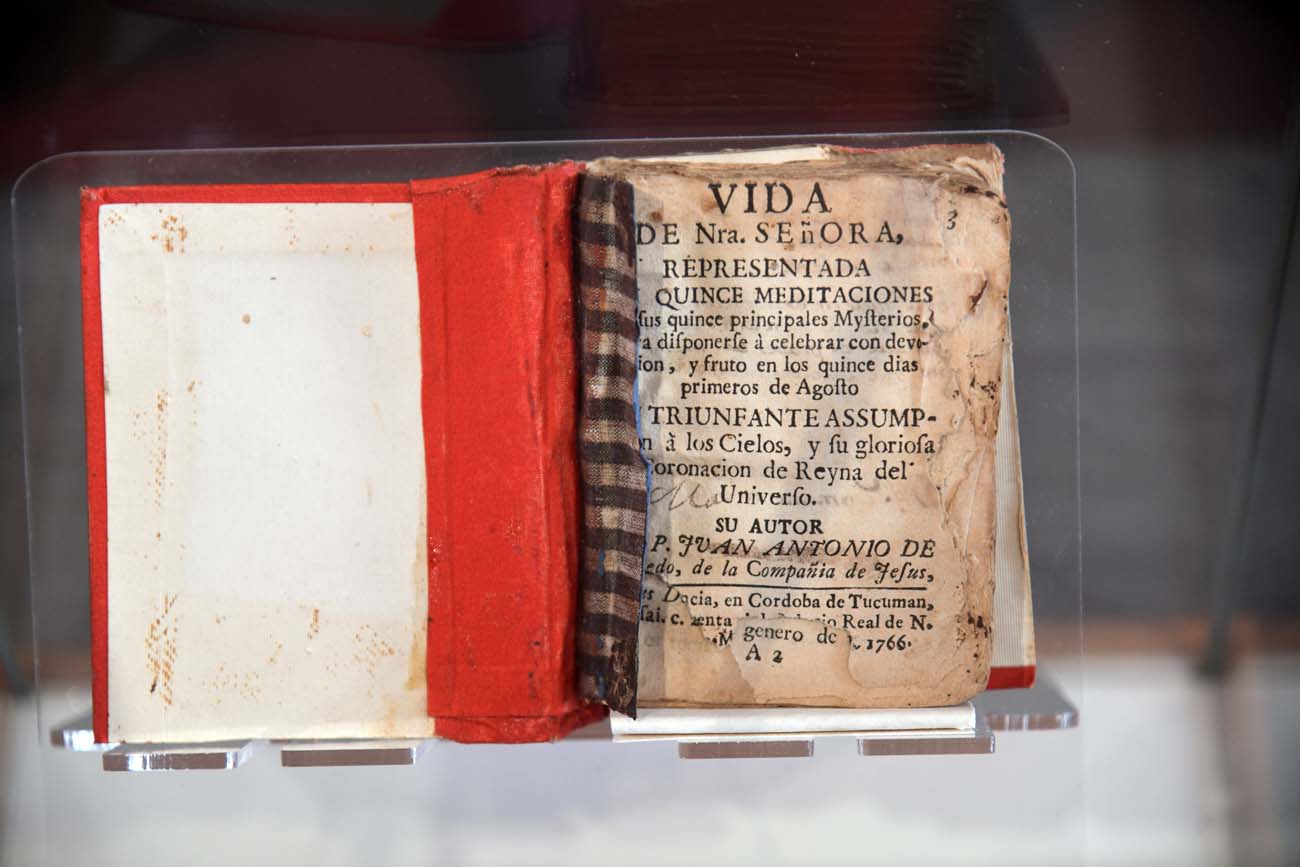 VIDA
3
DE Nra. SEñORA,
REPRESENTADA
QUINCE MEDITACIONES
sus quince principales Mysterios,
a disponerse à celebrar con devo-
ion, y fruto en los quince dias
primeros de Agosto
TRIUNFANTE ASSUMP-
n à los Cielos, y su gloriosa
Coronacion de Reyna del
Universo.
SU AUTOR
P. JVAN ANTONIO DE
edo, de la Compañia de Jesus,
Dacia, en Cordoba de Tucuman,
Real de N.
genero de 1766.
A 2